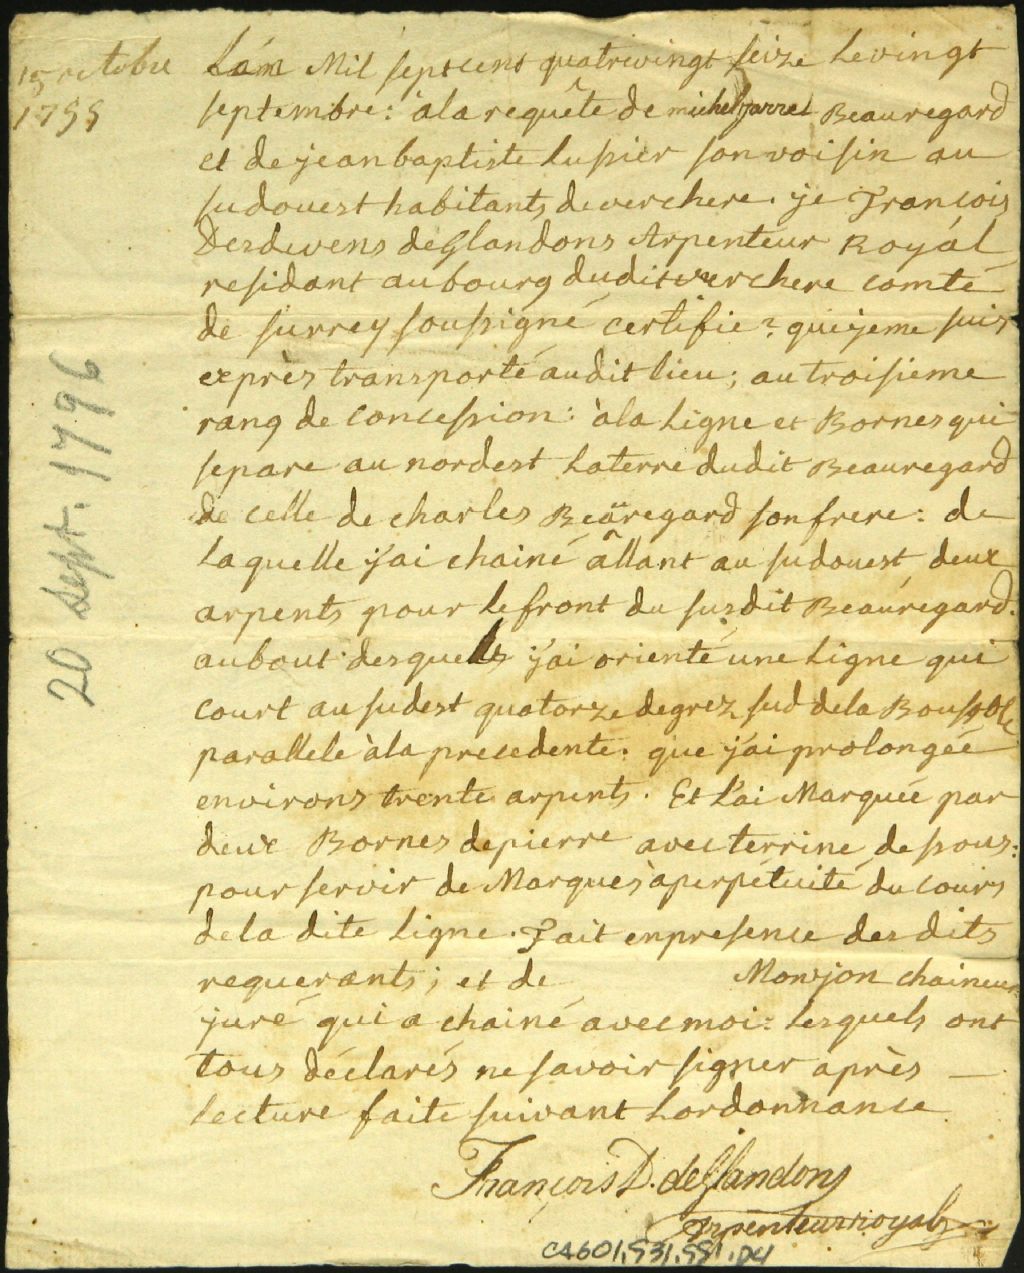 15 octobre
1799
L'an Mil septcent quatrevingt seize le vingt
septembre: à la requête de michel jarret Beauregard
et de jean baptiste Lussier son voisin au
sudouest habitants de verchere. je François
Desdevens de Glandons Arpenteur Royal
residant au bourg dudit verchere comté
de surrey soussigné certifie? que je me suis
exprès transporté audit lieu; au troisieme
rang de concession: à la Ligne et Bornes qui
separe au nordest La terre dudit Beauregard
de celle de charles Beauregard son frere: de
Laquelle j'ai chainé âllant au sudouest deux
arpents pour le front du susdit Beauregard.
au bout desquels j'ai orienté une Ligne qui
court au sudest quatorze degrez sud de la Boussole
parallele à la precedente: que j'ai prolongéé
environs trente arpents. Et L'ai Marquée par
deux Bornes de pierre avec terrine dessous:
pour servir de Marques à perpétuité du cours
de la dite Ligne. Fait en presence des dits
requerants; et de Monjon chaineur
juré qui a chainé avec moi: Lesquels ont
tous déclarés ne savoir signer après —
Lecture faite suivant Lordonnance
François D. de Glandons
Arpenteur royal
20 Sept. 1796
CA601,S31,SS1,D4